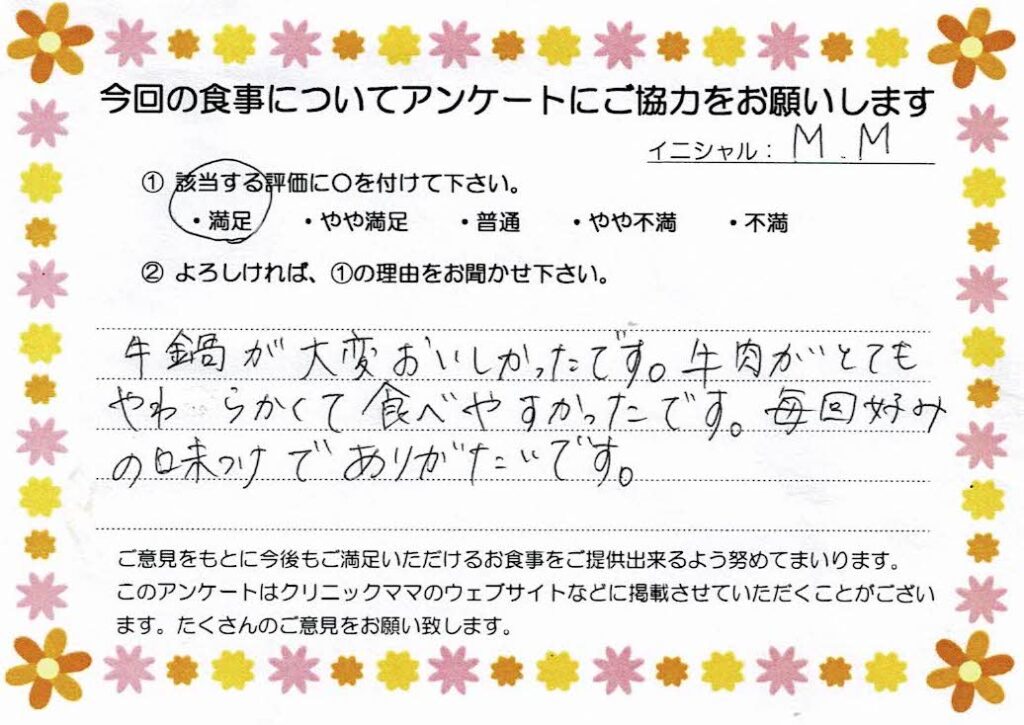 今回の食事についてアンケートにご協力をお願いします
イニシャル： M.M
① 該当する評価に〇を付けて下さい。
・満足 ・やや満足 ・普通 ・やや不満 ・不満
② よろしければ、①の理由をお聞かせ下さい。
牛鍋が大変おいしかったです。牛肉がとても
やわらかくて食べやすかったです。毎回好み
の味つけでありがたいです。
ご意見をもとに今後もご満足いただけるお食事をご提供出来るよう努めてまいります。
このアンケートはクリニックママのウェブサイトなどに掲載させていただくことがござい
ます。たくさんのご意見をお願い致します。